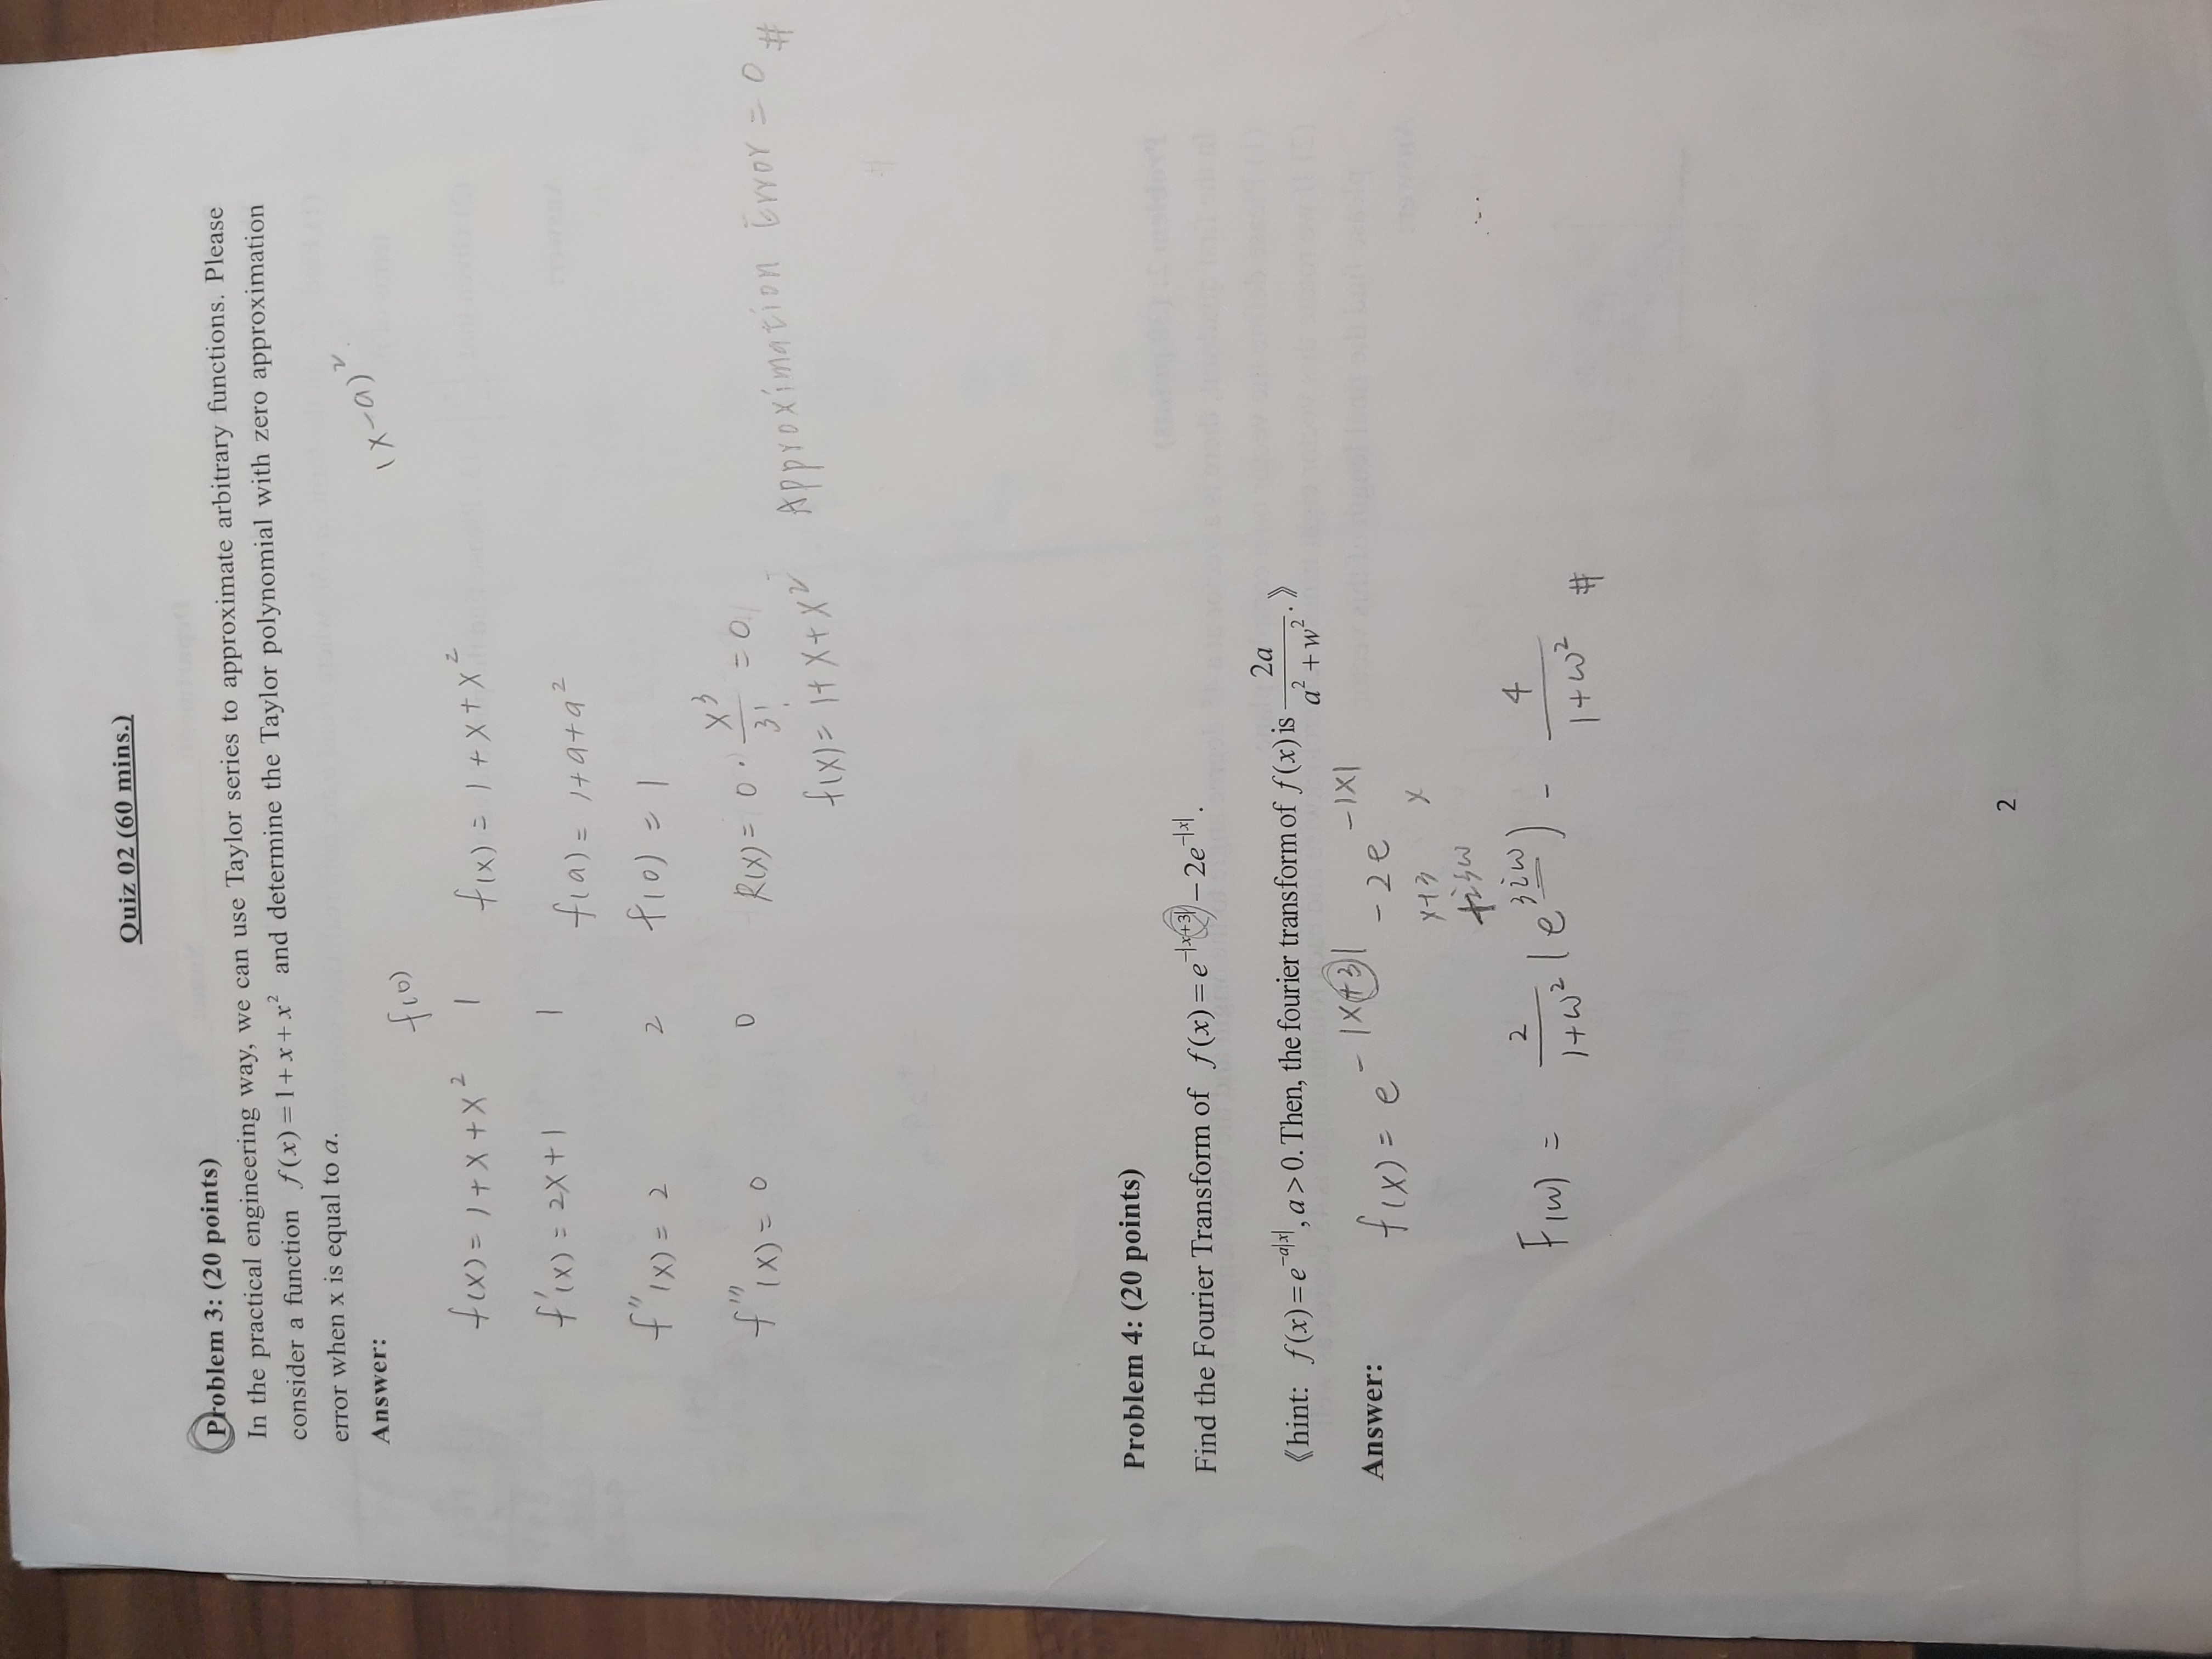 Quiz 02 (60 mins.)
Problem 3: (20 points)
In the practical engineering way, we can use Taylor series to approximate arbitrary functions. Please
consider a function f(x)=1+x+x² and determine the Taylor polynomial with zero approximation
error when x is equal to a.
Answer:
(x-a)²
f(0)
f(x) = 1+x+x² 1 f(x) = 1+x+x²
f'(x) = 2x+1 1 f(a) = 1+a+a²
f''(x) = 2 2 f(0) = 1
f'''(x) = 0 0 R(x) = 0 · x³/3! = 0
f(x) = 1+x+x² Approximation Error = 0 #
Problem 4: (20 points)
Find the Fourier Transform of f(x)=e^(-|x+3|) – 2e^(-|x|).
《hint: f(x)=e^(-a|x|), a>0. Then, the fourier transform of f(x) is 2a/(a²+w²).》
Answer: f(x) = e^(-|x+3|) - 2e^(-|x|)
x+3 x
+i3ω
F(w) = 2/(1+ω²) (e^(3iω)) - 4/(1+ω²) #
2